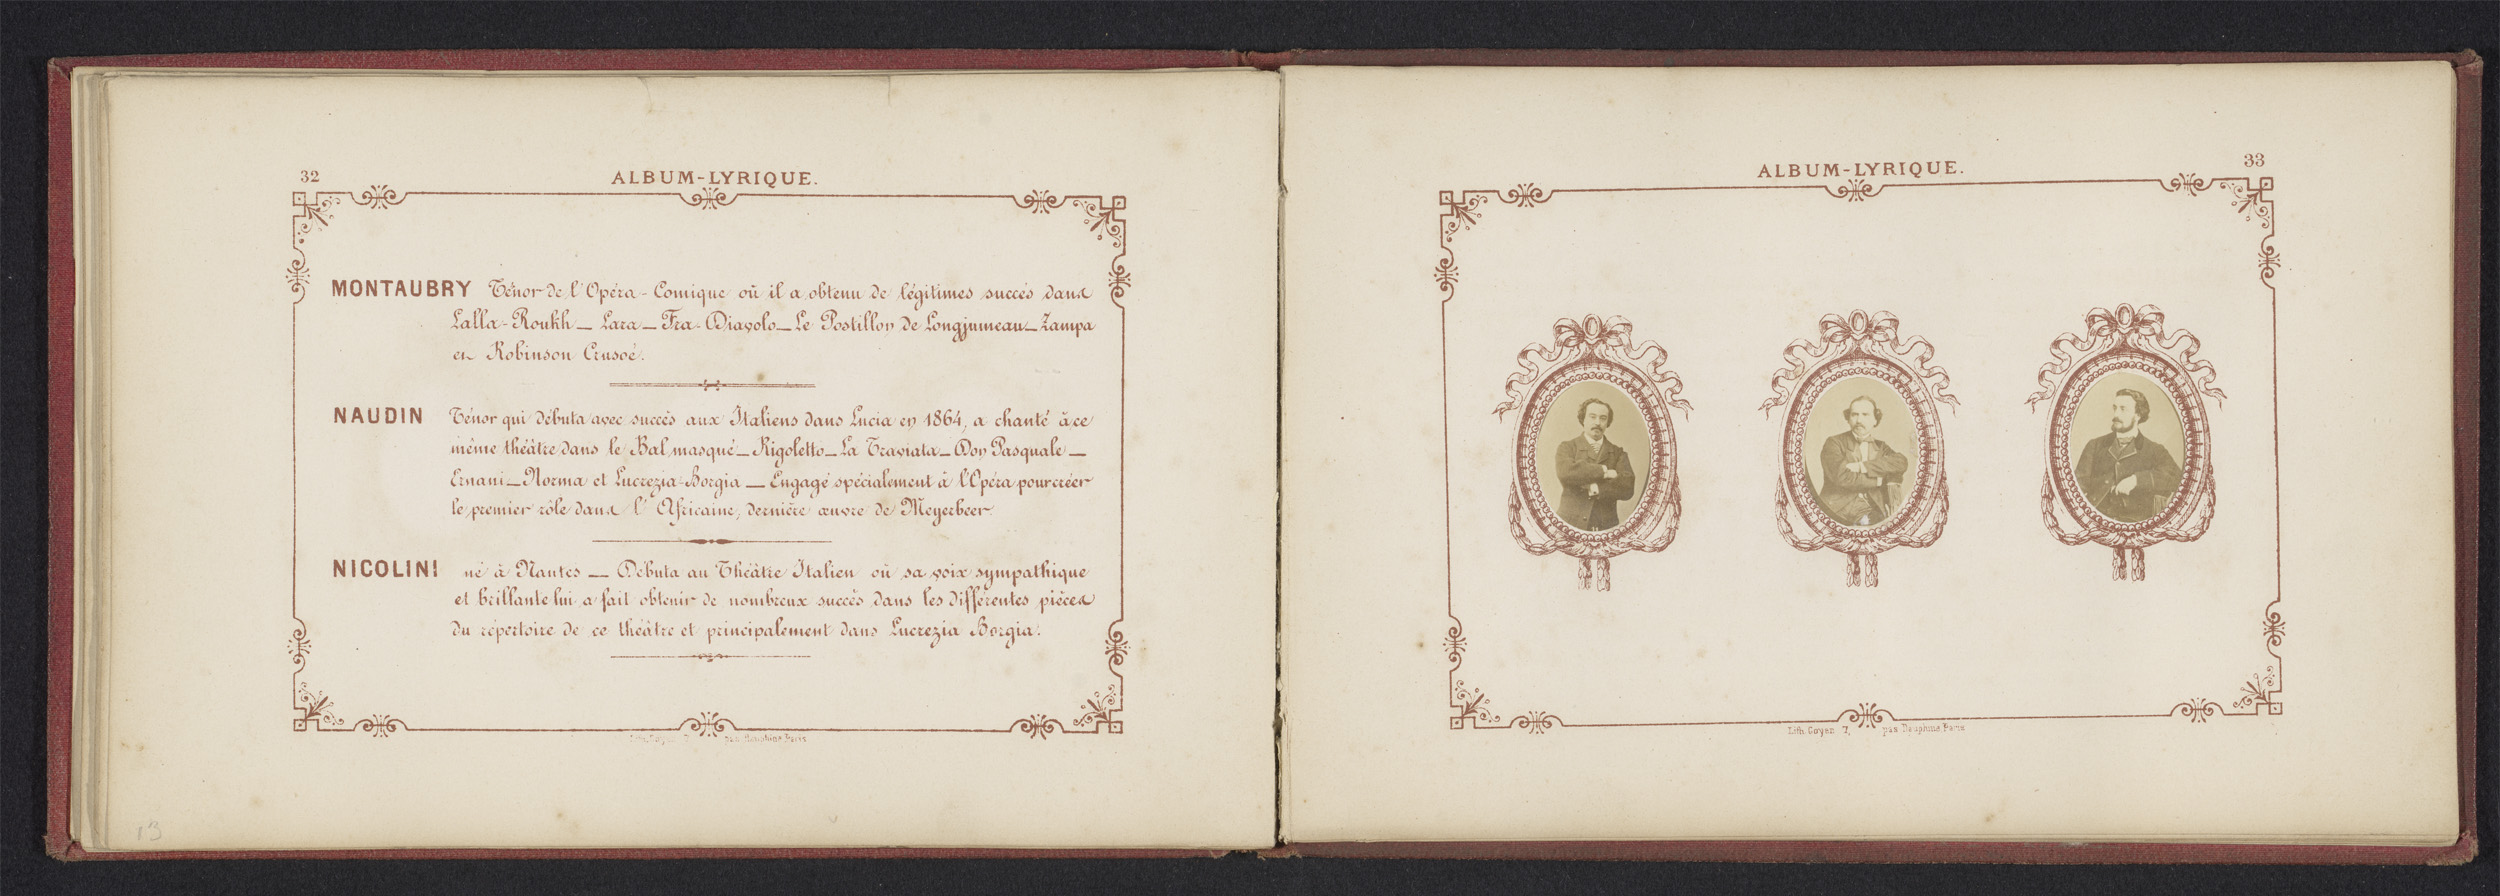 32
ALBUM-LYRIQUE.
MONTAUBRY Ténor de l'Opéra-Comique où il a obtenu de légitimes succès dans
Lalla-Roukh — Lara — Fra-Diavolo — Le Postillon de Longjumeau — Zampa
et Robinson Crusoé.
NAUDIN Ténor qui débuta avec succès aux Italiens dans Lucia en 1864, a chanté à ce
même théâtre dans le Bal masqué — Rigoletto — La Traviata — Don Pasquale —
Ernani — Norma et Lucrezia-Borgia — Engagé spécialement à l'Opéra pour créer
le premier rôle dans l'Africaine, dernière œuvre de Meyerbeer
NICOLINI né à Nantes — Débuta au Théâtre Italien où sa voix sympathique
et brillante lui a fait obtenir de nombreux succès dans les différentes pièces
du répertoire de ce théâtre et principalement dans Lucrezia Borgia.
Lith. Goyen 7, pas Dauphine, Paris
13
33
ALBUM-LYRIQUE.
Lith. Goyen 7, pas Dauphine, Paris